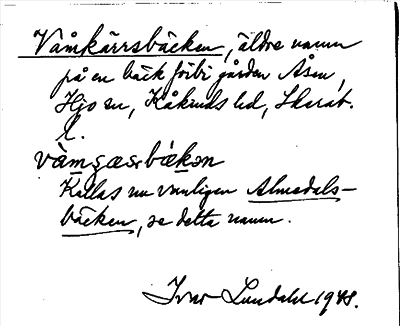 Våmkärrsbäcken, äldre namn
på en bäck förbi gården Åsen,
Hjo sn, Kåkinds hd, Skarab.
l.
våmsærbäkən
Kallas nu vanligen Almedals-
bäcken, se detta namn.
Ivar Lundahl 1948.